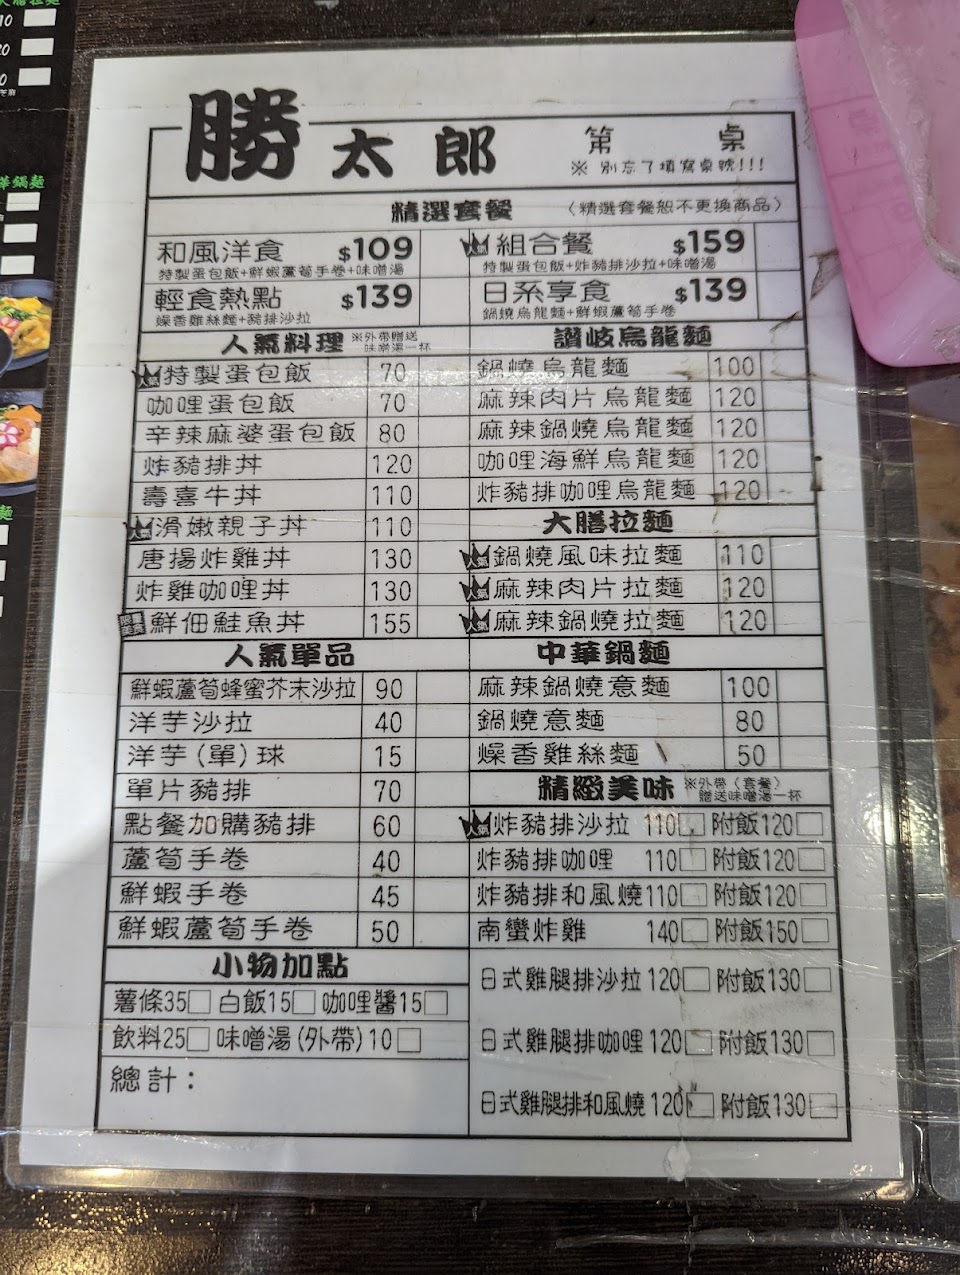 勝太郎
第 桌
※ 別忘了填寫桌號!!!
精選套餐 (精選套餐恕不更換商品)
和風洋食 $109
特製蛋包飯+鮮蝦蘆筍手卷+味噌湯
人氣 組合餐 $159
特製蛋包飯+炸豬排沙拉+味噌湯
輕食熱點 $139
燥香雞絲麵+豬排沙拉
日系享食 $139
鍋燒烏龍麵+鮮蝦蘆筍手卷
人氣料理 ※外帶贈送味噌湯一杯
人氣 特製蛋包飯 70
咖哩蛋包飯 70
辛辣麻婆蛋包飯 80
炸豬排丼 120
壽喜牛丼 110
人氣 滑嫩親子丼 110
唐揚炸雞丼 130
炸雞咖哩丼 130
鮮佃鮭魚丼 155
人氣單品
鮮蝦蘆筍蜂蜜芥末沙拉 90
洋芋沙拉 40
洋芋(單)球 15
單片豬排 70
點餐加購豬排 60
蘆筍手卷 40
鮮蝦手卷 45
鮮蝦蘆筍手卷 50
小物加點
薯條35□ 白飯15□ 咖哩醬15□
飲料25□ 味噌湯(外帶)10□
總計：
讚岐烏龍麵
鍋燒烏龍麵 100
麻辣肉片烏龍麵 120
麻辣鍋燒烏龍麵 120
咖哩海鮮烏龍麵 120
炸豬排咖哩烏龍麵 120
大膳拉麵
人氣 鍋燒風味拉麵 110
人氣 麻辣肉片拉麵 120
人氣 麻辣鍋燒拉麵 120
中華鍋麵
麻辣鍋燒意麵 100
鍋燒意麵 80
燥香雞絲麵 50
精緻美味 ※外帶(套餐)贈送味噌湯一杯
人氣 炸豬排沙拉 110□ 附飯120□
炸豬排咖哩 110□ 附飯120□
炸豬排和風燒110□ 附飯120□
南蠻炸雞 140□ 附飯150□
日式雞腿排沙拉120□ 附飯130□
日式雞腿排咖哩120□ 附飯130□
日式雞腿排和風燒120□ 附飯130□